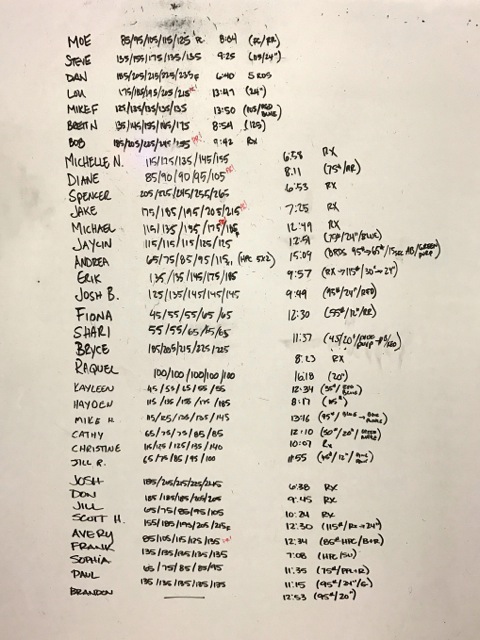 MOE 85/95/105/115/125 8:04 (PC/RR)
STEVE 135/155/175/135/135 9:25 (/24")
DAN 185/205/215/225/235F 6:40 5 RDS
LOU 175/185/195/205/215 PR! 13:47 (24")
MIKE F 125/135/135/135/135 13:50 (105/RED BLUE)
BRETTN 135/145/155/165/175 8:54 (125)
BOB 185/205/225/245/255 PR! 9:42 RX
MICHELLE N. 115/125/135/145/155 6:58 RX
DIANE 85/90/90/95/105 PR! 8:11 (75#/RR)
SPENCER 205/225/245/255/265 6:53 RX
JAKE 175/185/195/205/215 PR! 7:25 RX
MICHAEL 115/135/155/175/185F 12:49 RX
JAYLIN 115/115/115/125/125 12:51 (75#/24"/BLUE)
ANDREA 65/75/85/95/115, (HPC 5x2) 15:09 (95#→65#/15/GREEN)
ERIK 135/135/145/175/185 9:57 (RX→115#/30"→24")
JOSH B. 125/135/145/145/145 9:49 (95#/24"/RED)
FIONA 45/55/55/65/65 12:30 (55#/12"/RR)
SHARI 55/55/65/65/65 11:37 (45/20"/)
BRYCE 185/205/215/225/225 8:23 RX
RAQUEL 100/100/100/100/100 16:18 (20")
KAYLEEN 45/55/65/55/55 12:34 (35#/)
HAYDEN 115/135/155/175/185 8:17 (115#)
MIKE H. 115/125/135/135/145 13:16 (95#/BLUE→)
CATHY 65/75/75/85/85 12:10 (50#/20"/)
CHRISTINE 115/125/125/135/140 10:07 Rx
JILL R. 65/75/85/95/100 (45#/12"/)
JOSH 185/205/215/225/245 6:38 RX
DON 185/185/185/205/205 9:45 RX
JILL 65/75/85/95/105 10:24 RX
SCOTT H. 155/185/195/205/215F 12:30 (115#/Rx→24")
AVERY 85/105/115/125/135 PR! 12:34 (85# HPC/B+R)
FRANK 135/135/135/135/135 7:08 (HPC/SU)
SOPHIA 65/75/85/85/95 11:35 (75#/PP+R)
PAUL 135/135/135/185/185 11:15 (95#/24"/G)
BRANDON 12:53 (95#/20")